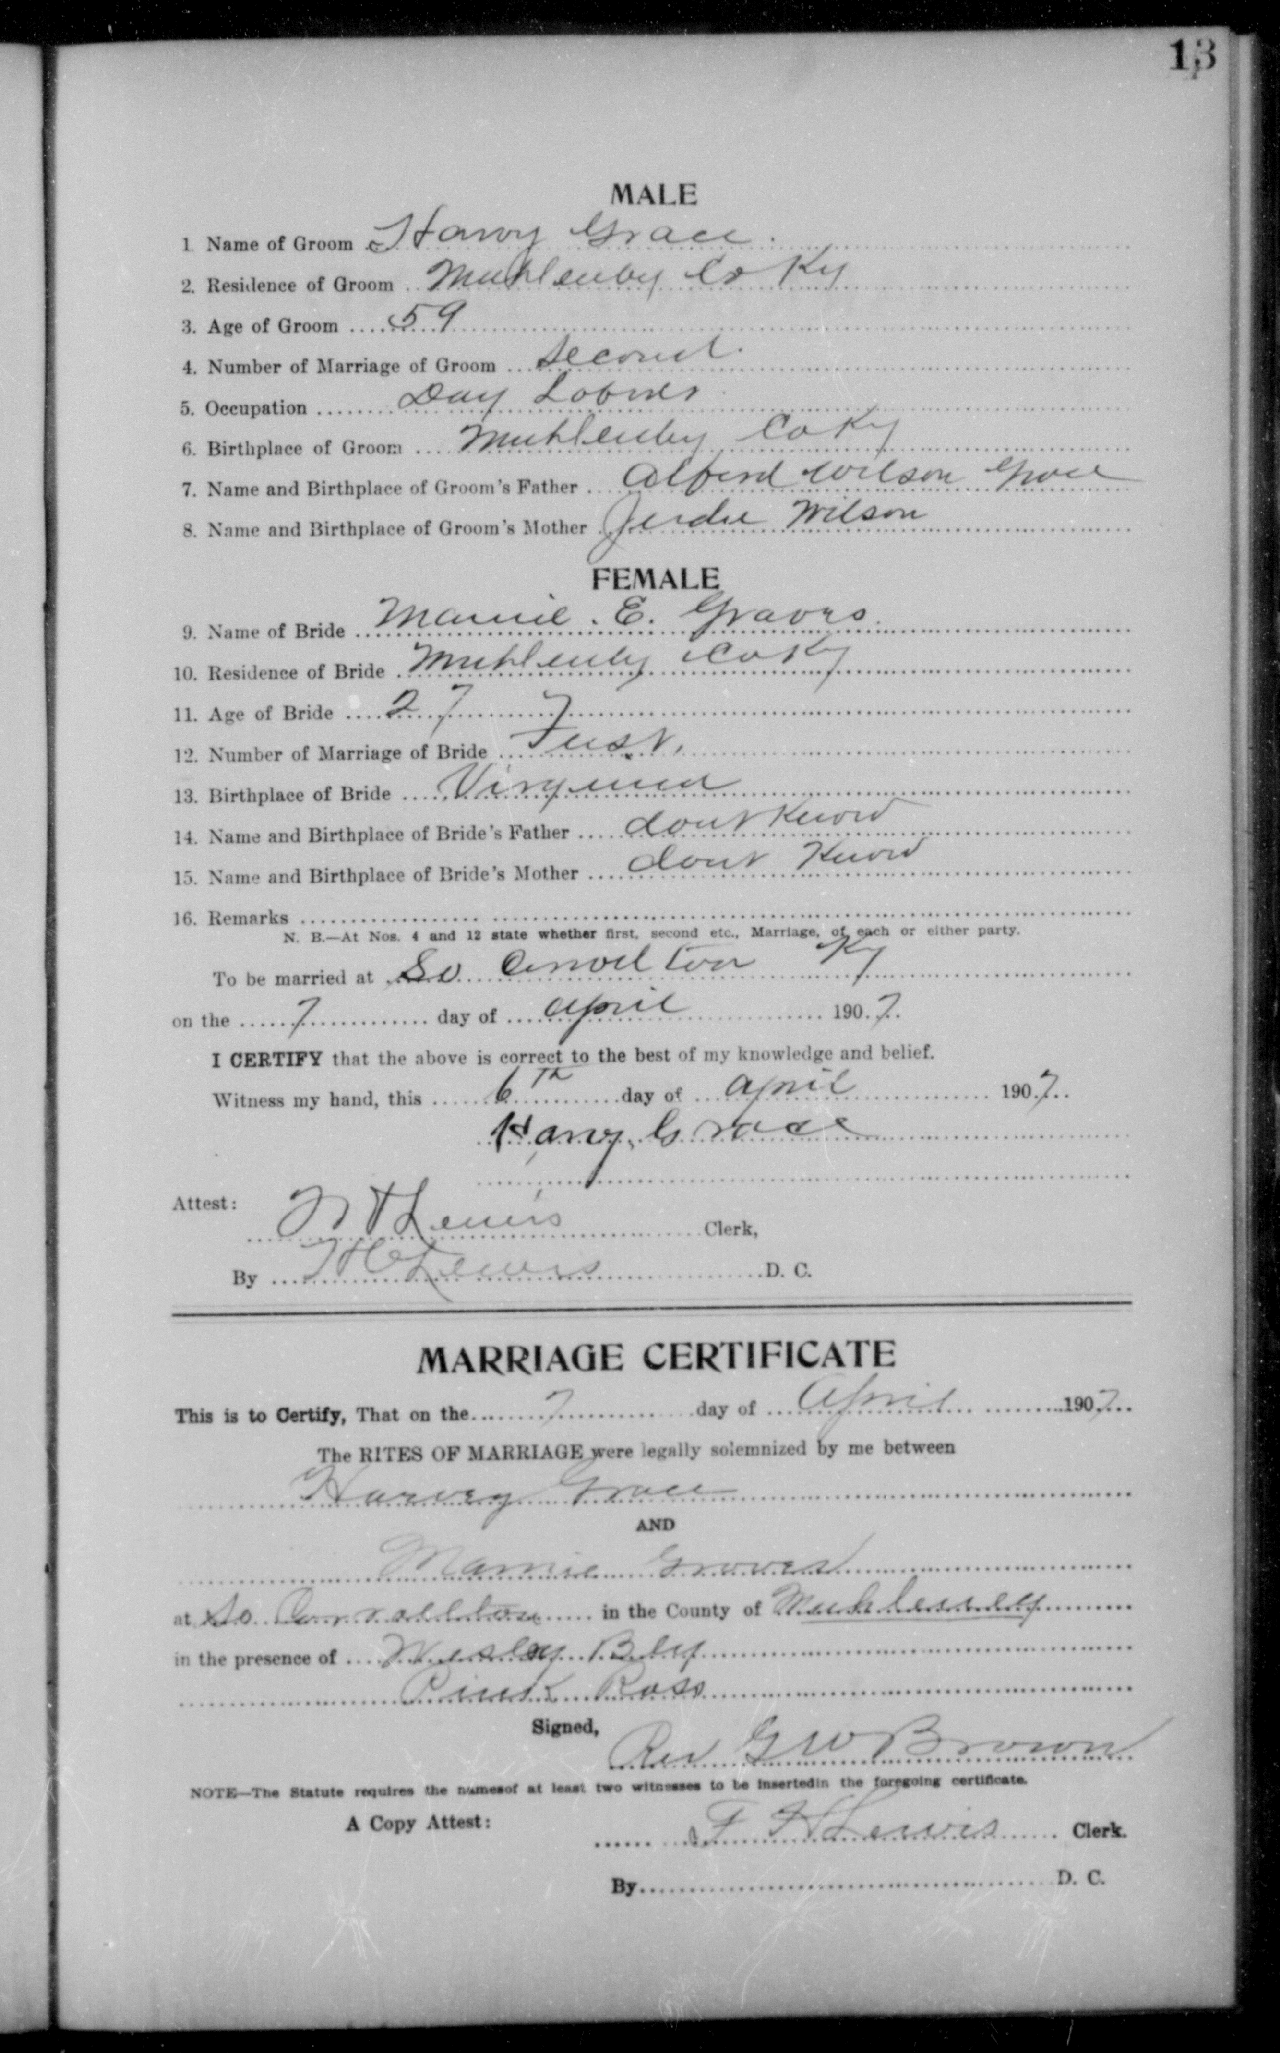 13
MALE
1 Name of Groom Harvy Grace.
2. Residence of Groom Muhlenby Co Ky
3. Age of Groom 59
4. Number of Marriage of Groom Second.
5. Occupation Day Laborer
6. Birthplace of Groom Muhlenby Co Ky
7. Name and Birthplace of Groom's Father Alford Wilson Grace
8. Name and Birthplace of Groom's Mother Wilson
FEMALE
9. Name of Bride Mamie. E. Graves.
10. Residence of Bride Muhlenby Co Ky
11. Age of Bride 27
12. Number of Marriage of Bride First.
13. Birthplace of Bride Virginia
14. Name and Birthplace of Bride's Father dont Know
15. Name and Birthplace of Bride's Mother dont Know
16. Remarks
N. B.—At Nos. 4 and 12 state whether first, second etc., Marriage, of each or either party.
To be married at So Carrollton Ky
on the 7 day of April 1907.
I CERTIFY that the above is correct to the best of my knowledge and belief.
Witness my hand, this 6th day of April 1907.
Harvy Grace
Attest:
Lewis Clerk,
By Lewis D. C.
MARRIAGE CERTIFICATE
This is to Certify, That on the 7 day of April 1907.
The RITES OF MARRIAGE were legally solemnized by me between
Harvey Grace
AND
Mamie Groves
at So Carrollton in the County of Muhlenbey
in the presence of Wesley Bly
Pink Ross
Signed, Rev G W Brown
NOTE—The Statute requires the namesof at least two witnesses to be insertedin the foregoing certificate.
A Copy Attest:
Lewis Clerk.
By D. C.